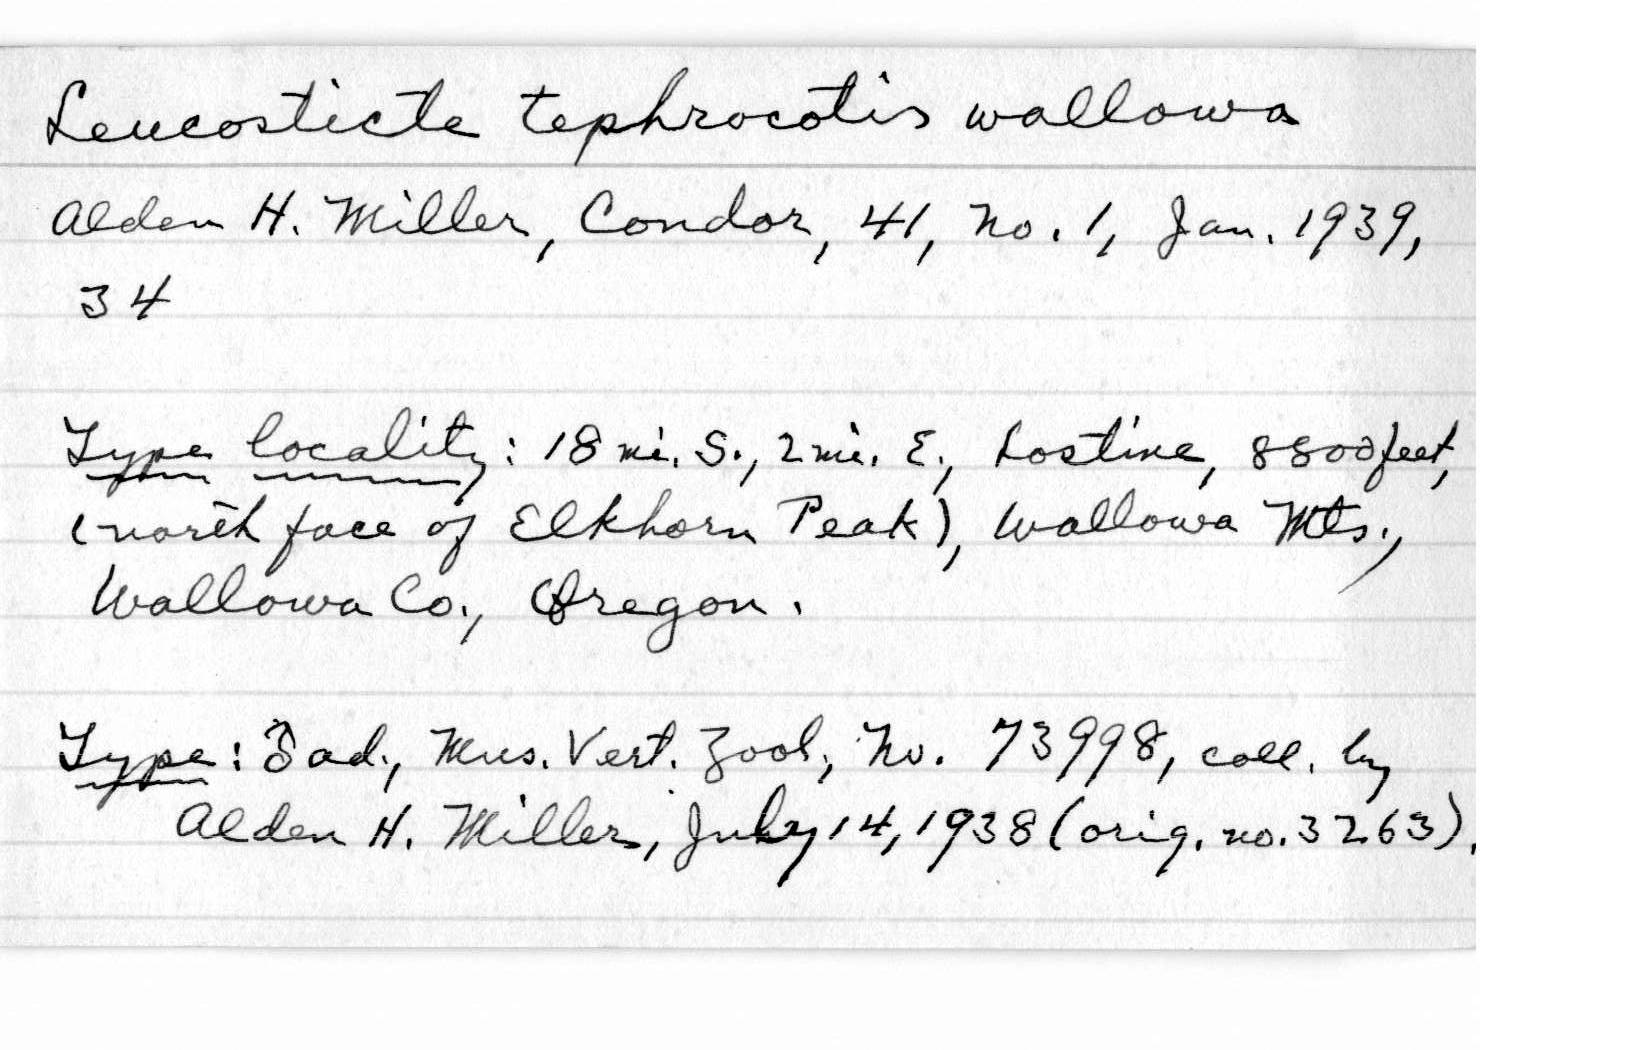 Leucosticte tephrocotis wallowa
Alden H. Miller, Condor, 41, No. 1, Jan. 1939,
34
Type locality: 18 mi. S., 2 mi. E., Lostine, 8800 feet,
(north face of Elkhorn Peak), Wallowa Mts.,
Wallowa Co., Oregon.
Type: ♂ ad., Mus. Vert. Zool., No. 73998, coll. by
Alden H. Miller, July 14, 1938 (orig. no. 3263).